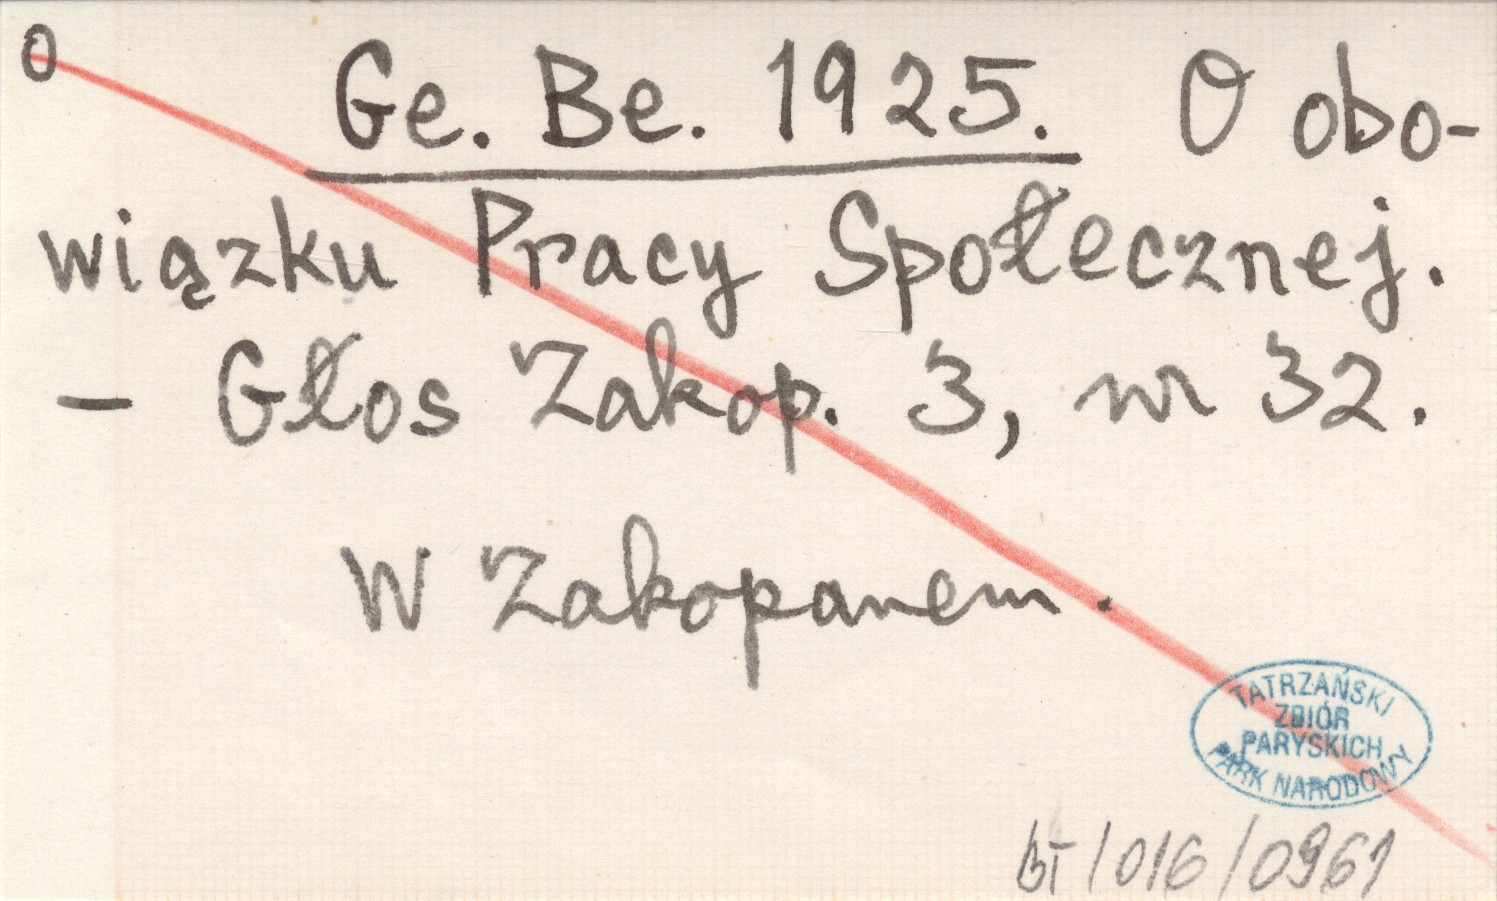 O
Ge. Be. 1925. O obo-
wiązku Pracy Społecznej.
- Głos Zakop. 3, nr 32.
W Zakopanem.
TATRZAŃSKI
ZBIÓR
PARYSKICH
PARK NARODOWY
BT/016/0961